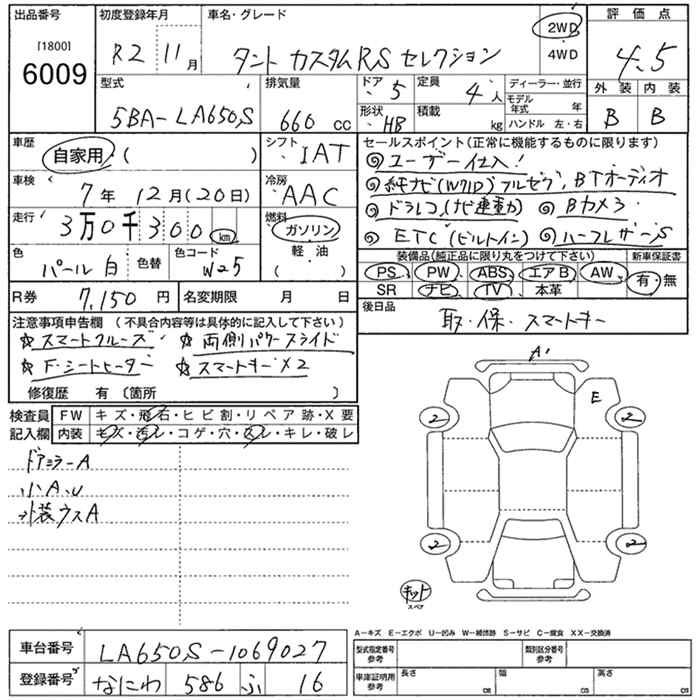 出品番号 初度登録年月 車名・グレード 2WD 評価点
[1800] 6009 R2 11月 タント カスタムRS セレクション 4WD 4.5
型式 排気量 ドア 5 定員 4人 ディーラー・並行 外装 内装
5BA-LA650S 660 cc 形状 HB 積載 kg モデル年式 年 B B
ハンドル 左・右
車歴 自家用 ( ) シフト IAT セールスポイント(正常に機能するものに限ります)
◎ユーザー仕入!
車検 7年 12月(20日) 冷房 AAC ◎純ナビ(W71D)フルセグ、BTオーディオ
走行 3万0千300km 燃料 ガソリン ◎ドラレコ(ナビ連動) ◎Bカメラ
軽油 ( ) ◎ETC(ビルトイン) ◎ハーフレザーS
色 パール白 色替 色コード W25 装備品(純正品に限り丸をつけて下さい) 新車保証書
PS PW ABS エアB AW 有・無
R券 7,150円 名変期限 月 日 SR ナビ TV 本革
注意事項申告欄 (不具合内容等は具体的に記入して下さい) 後日品
☆スマートクルーズ ☆両側パワースライド 取・保・スマートキー
☆F・シートヒーター ☆スマートキー×2
修復歴 有 〔箇所 〕
検査員 FW キズ・飛石・ヒビ割・リペア跡・X要
記入欄 内装 キズ・汚レ・コゲ・穴・スレ・キレ・破レ
A1
E
2 2
ドアミラーA
小A、U
外装ウスA
2 2
キット
スペア
A-キズ E-エクボ U-凹み W-補修跡 S-サビ C-腐食 XX-交換済
車台番号 LA650S-1069027 型式指定番号 参考 類別区分番号 参考
登録番号 なにわ 586 ふ 16 車庫証明用 参考 長さ cm 幅 cm 高さ cm